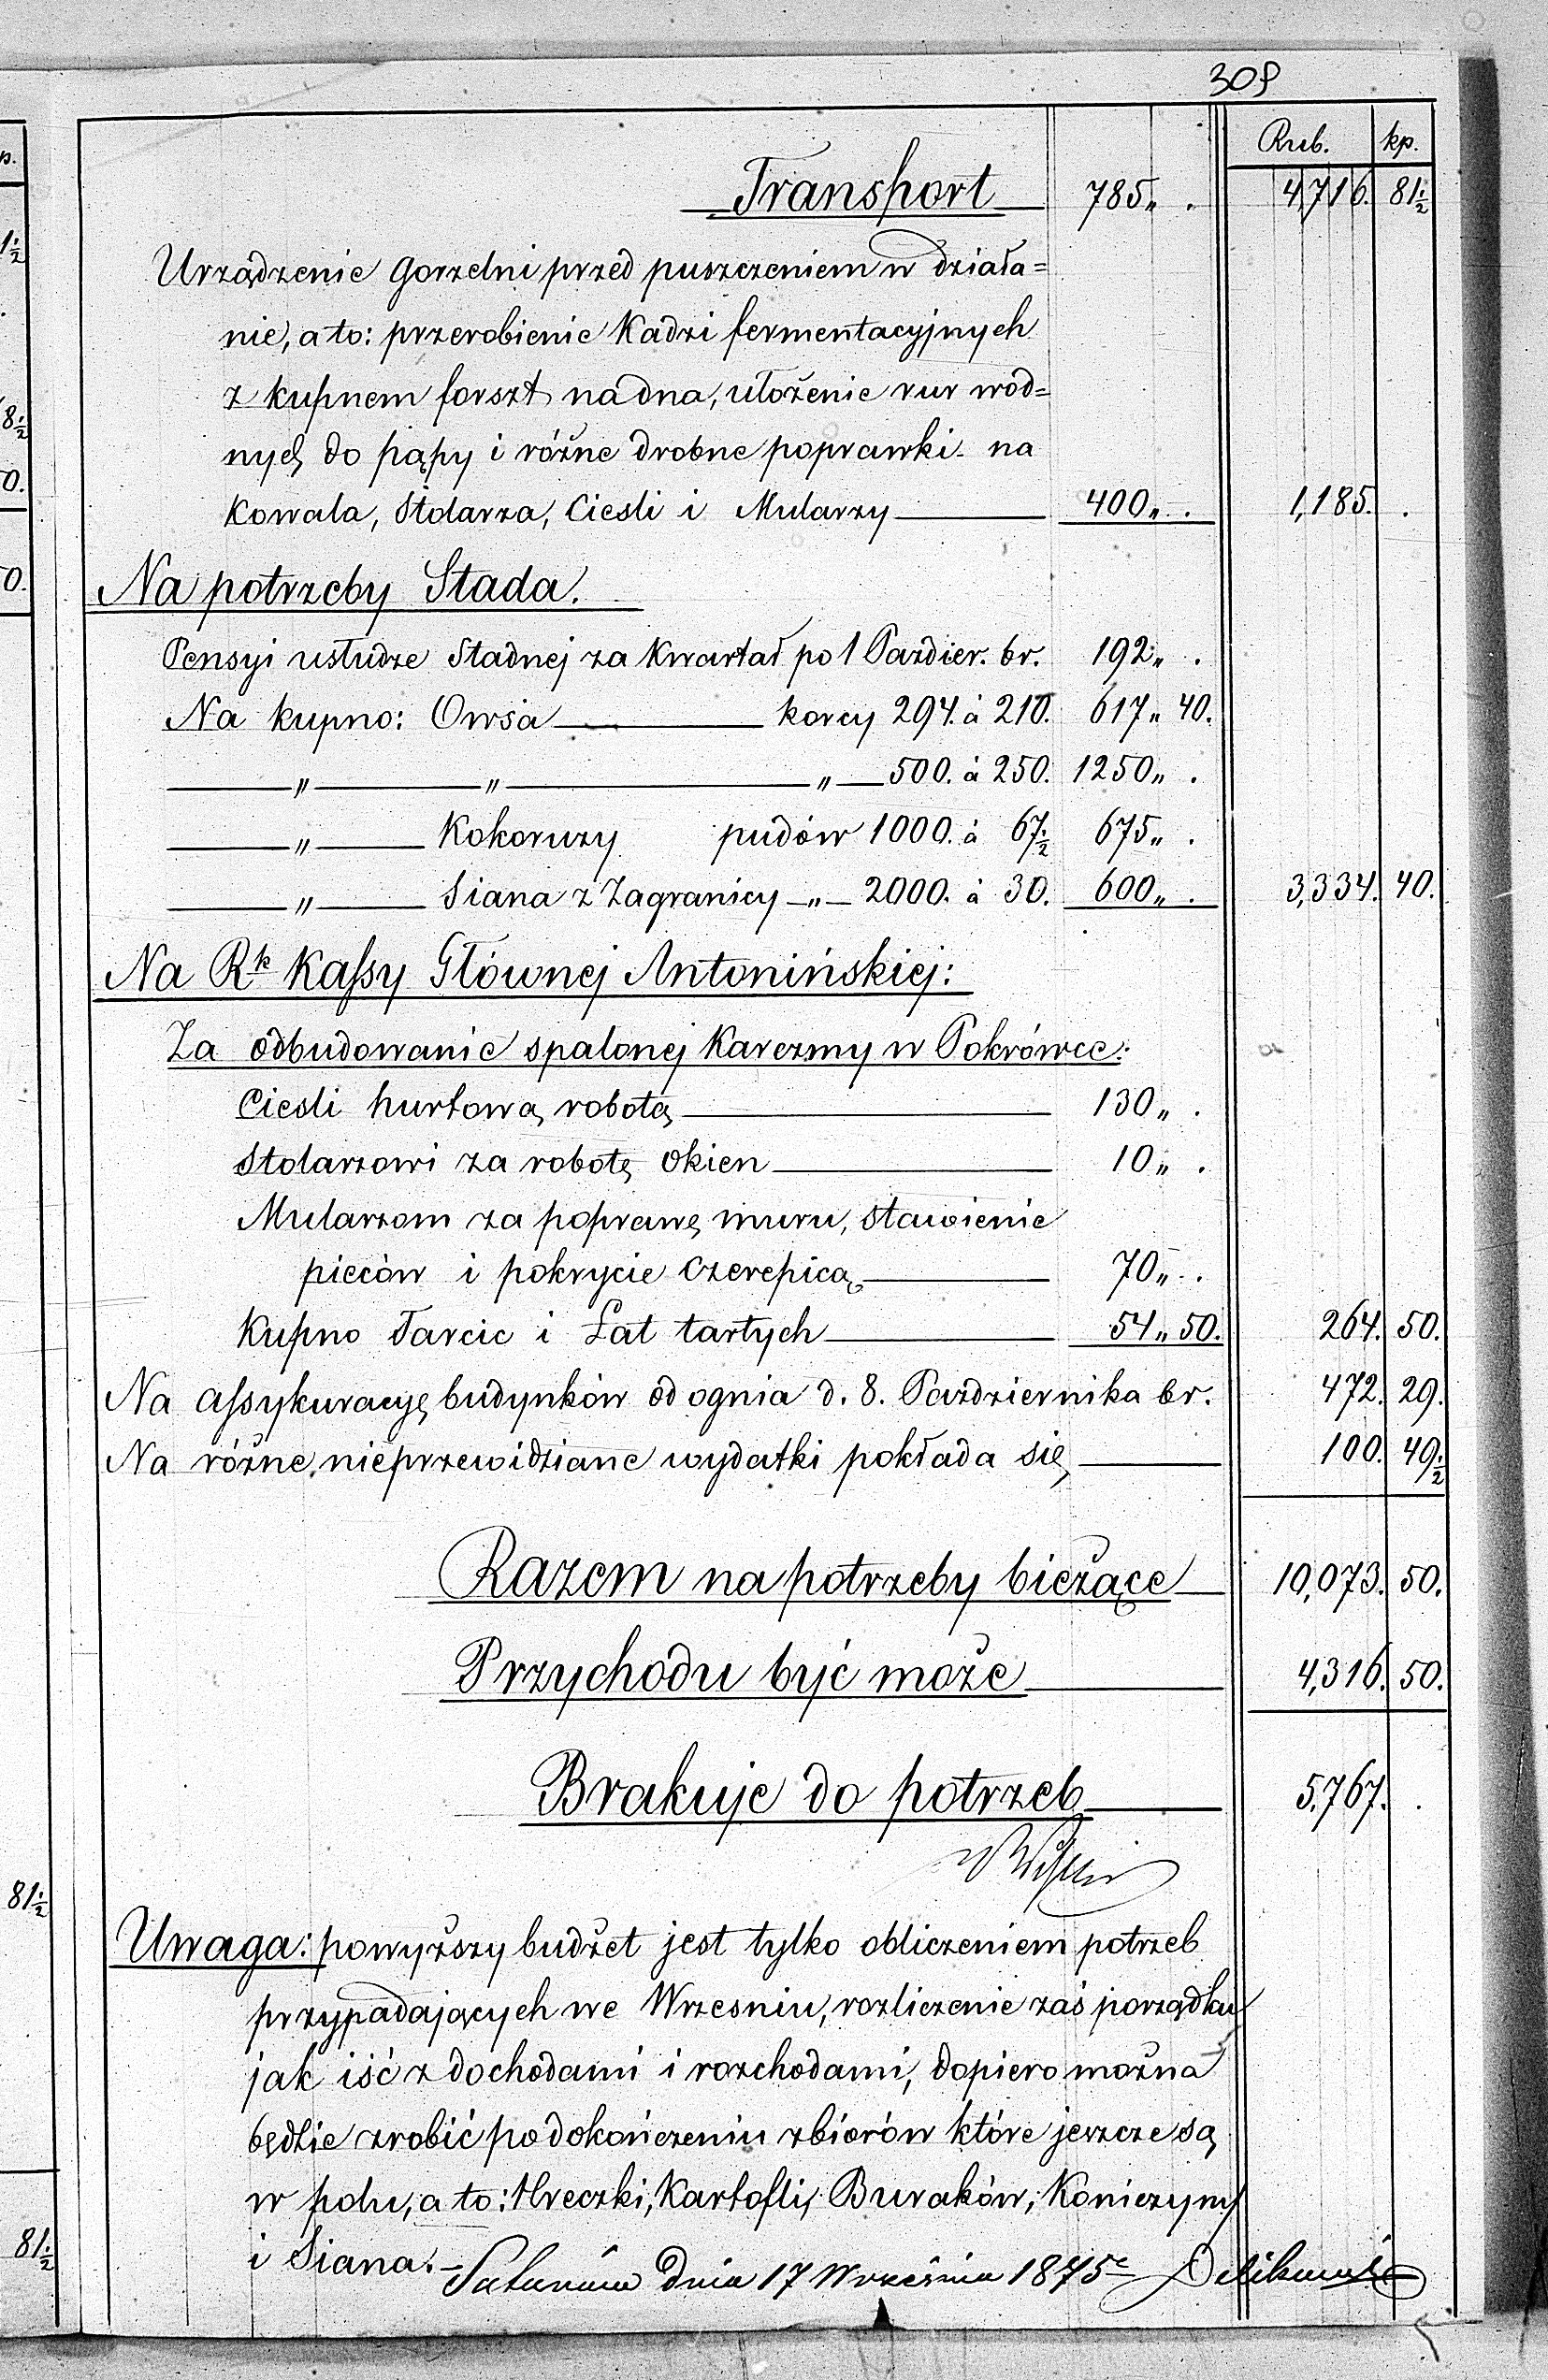 309
Rub. kp.
Transport 785„ . 4,716. 81½
Urządzenie gorzelni przed puszczeniem w działa=
nie, a to: przerobienie Kadzi fermentacyjnych
z kupnem forszt na dna, ułożenie rur wod=
nych do pąpy i różne drobne poprawki na
Kowala, Stolarza, Cieśli i Mularzy 400„ . 1,185. .
Na potrzeby Stada.
Pensyi usłudze Stadnej za Kwartał po 1 Pazdier. br. 192„ .
Na kupno: Owsa korcy 294. à 210. 617„ 40.
„ „ „ 500. à 250. 1250„ .
„ Kokoruzy pudów 1000. à 67½ 675„ .
„ Siana z Zagranicy „ 2000. à 30. 600„ . 3,334. 40.
Na Rk Kassy Głównej Antonińskiej:
Za odbudowanie spalonej Karczmy w Pokrówce:
Cieśli hurtową robotą 130„ .
Stolarzowi za robotę okien 10„ .
Mularzom za poprawę muru, stawienie
pieców i pokrycie czerepicą 70„ .
Kupno Tarcic i Łat tartych 54„ 50. 264. 50.
Na assykuracyę budynków od ognia d. 8. Pazdziernika br. 472. 29.
Na różne nieprzewidziane wydatki pokłada się 100. 49½
Razem na potrzeby bieżące 10,073. 50.
Przychodu być może 4,316. 50.
Brakuje do potrzeb 5.767. .
Uwaga: powyższy budżet jest tylko obliczeniem potrzeb
przypadających we Wrzesniu, rozliczenie zaś porządku
jak iść z dochodami i rozchodami, dopiero można
będzie zrobić po dokończeniu zbiorów które jeszcze są
w polu, a to: Hreczki, Kartofli, Buraków, Koniczyny
i Siana.
dnia 17 Września 1875
1½
8½
0.
0.
81½
81½